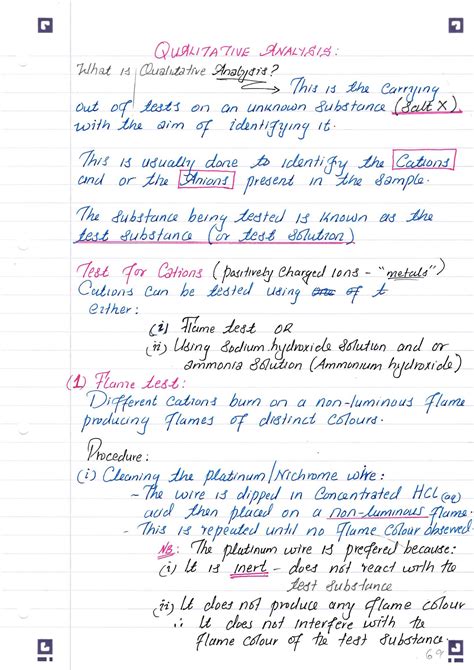 QUALITATIVE ANALYSIS:
What is Qualitative Analysis?
This is the carrying
out of tests on an unknown substance (Salt X)
with the aim of identifying it.
This is usually done to identify the Cations
and or the Anions present in the sample.
The substance being tested is known as the
test substance (or test solution)
Test for Cations (positively charged ions - "metals")
Cations can be tested using of t
either:
(i) Flame test OR
(ii) Using Sodium hydroxide solution and or
ammonia solution (Ammonium hydroxide)
(1) Flame test:
Different cations burn on a non-luminous flame
producing flames of distinct colours.
Procedure:
(i) Cleaning the platinum/Nichrome wire:
- The wire is dipped in Concentrated HCl(aq)
acid then placed on a non-luminous flame.
- This is repeated until no flame colour observed
NB: The platinum wire is prefered because:
(i) It is inert - does not react with the
test substance
(ii) It does not produce any flame colour
∴ It does not interfere with the
flame colour of the test substance.
69